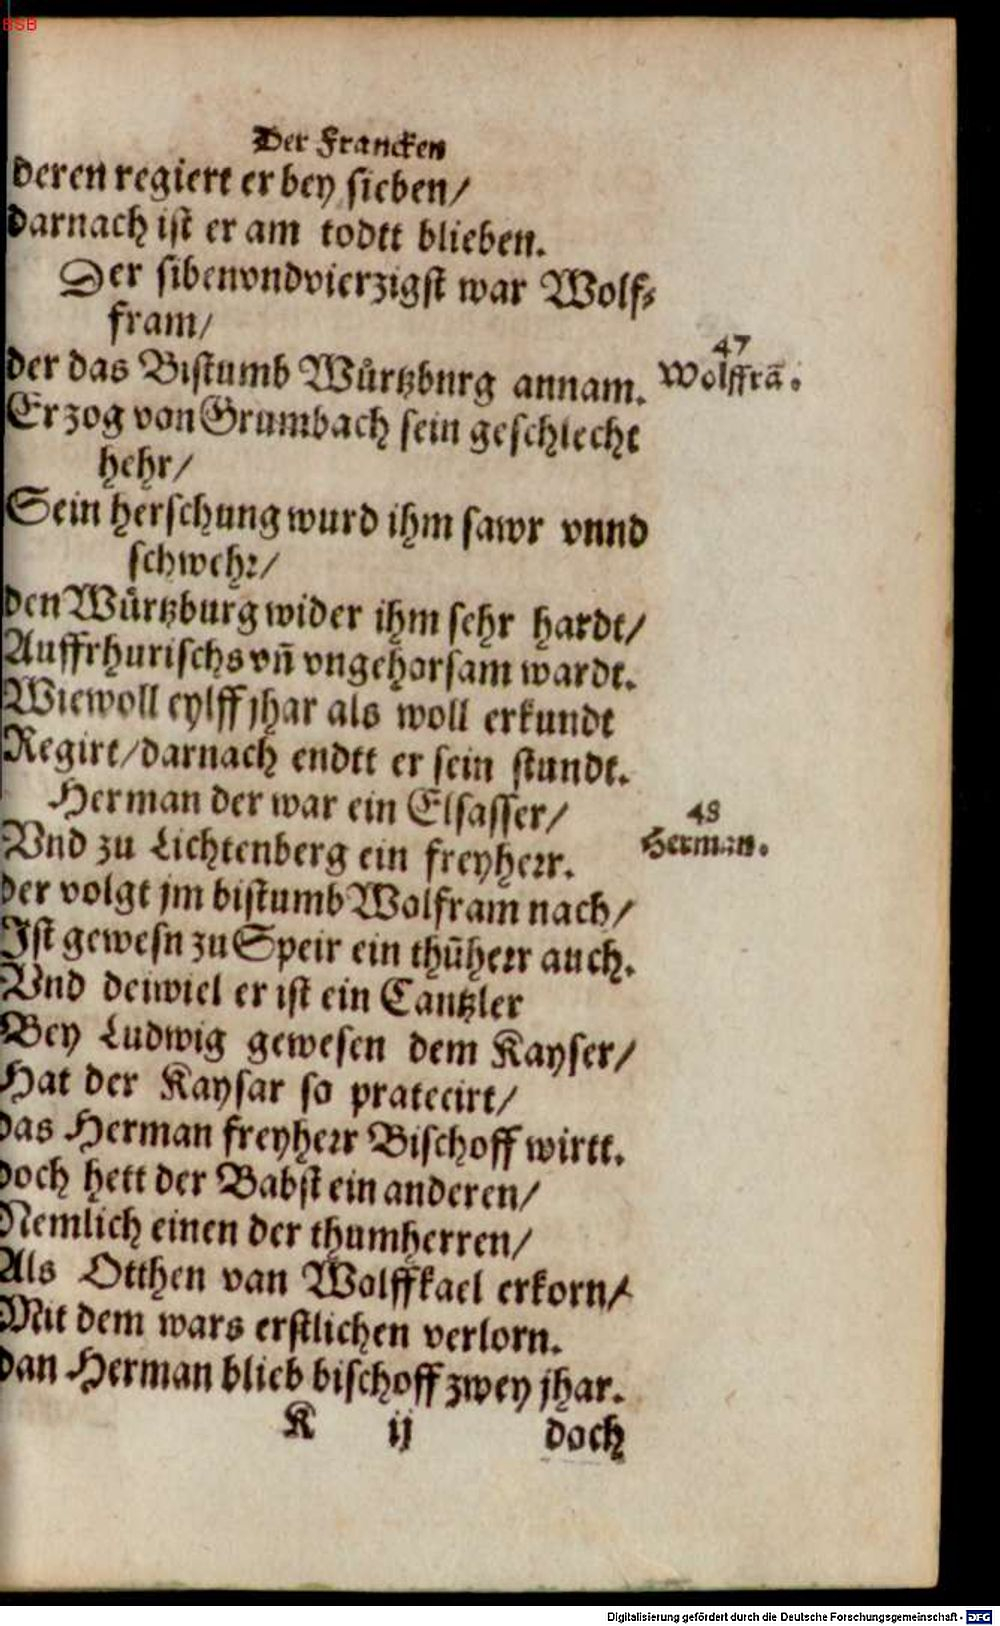 BSB
Der Francken
deren regiert er bey sieben/
darnach ist er am todtt blieben.
Der sibenvndvierzigst war Wolf⸗
fram/
47
der das Bistumb Wuͤrtzburg annam.
Wolffrā.
Er zog van Grumbach sein geschlecht
hehr/
Sein herschung wurd ihm sawr vnnd
schwehr/
den Wuͤrtzburg wider ihm sehr hardt/
Auffrhurischs vn̄ vngehorsam wardt.
Wiewoll eylff jhar als woll erkundt
Regirt/darnach endtt er sein stundt.
Herman der war ein Elsasser/
48
Vnd zu Lichtenberg ein freyherr.
Herman.
der volgt jm bistumb Wolfram nach/
Ist gewesn zu Speir ein thūherr auch.
Vnd deiwiel er ist ein Cantzler
Bey Ludwig gewesen dem Kayser/
Hat der Kaysar so pratecirt/
das Herman freyherr Bischoff wirtt.
doch hett der Babst ein anderen/
Nemlich einen der thumherren/
Als Otthen van Wolffkael erkorn/
Mit dem wars erstlichen verlorn.
dan Herman blieb bischoff zwey jhar.
K ij doch
Digitalisierung gefördert durch die Deutsche Forschungsgemeinschaft - DFG